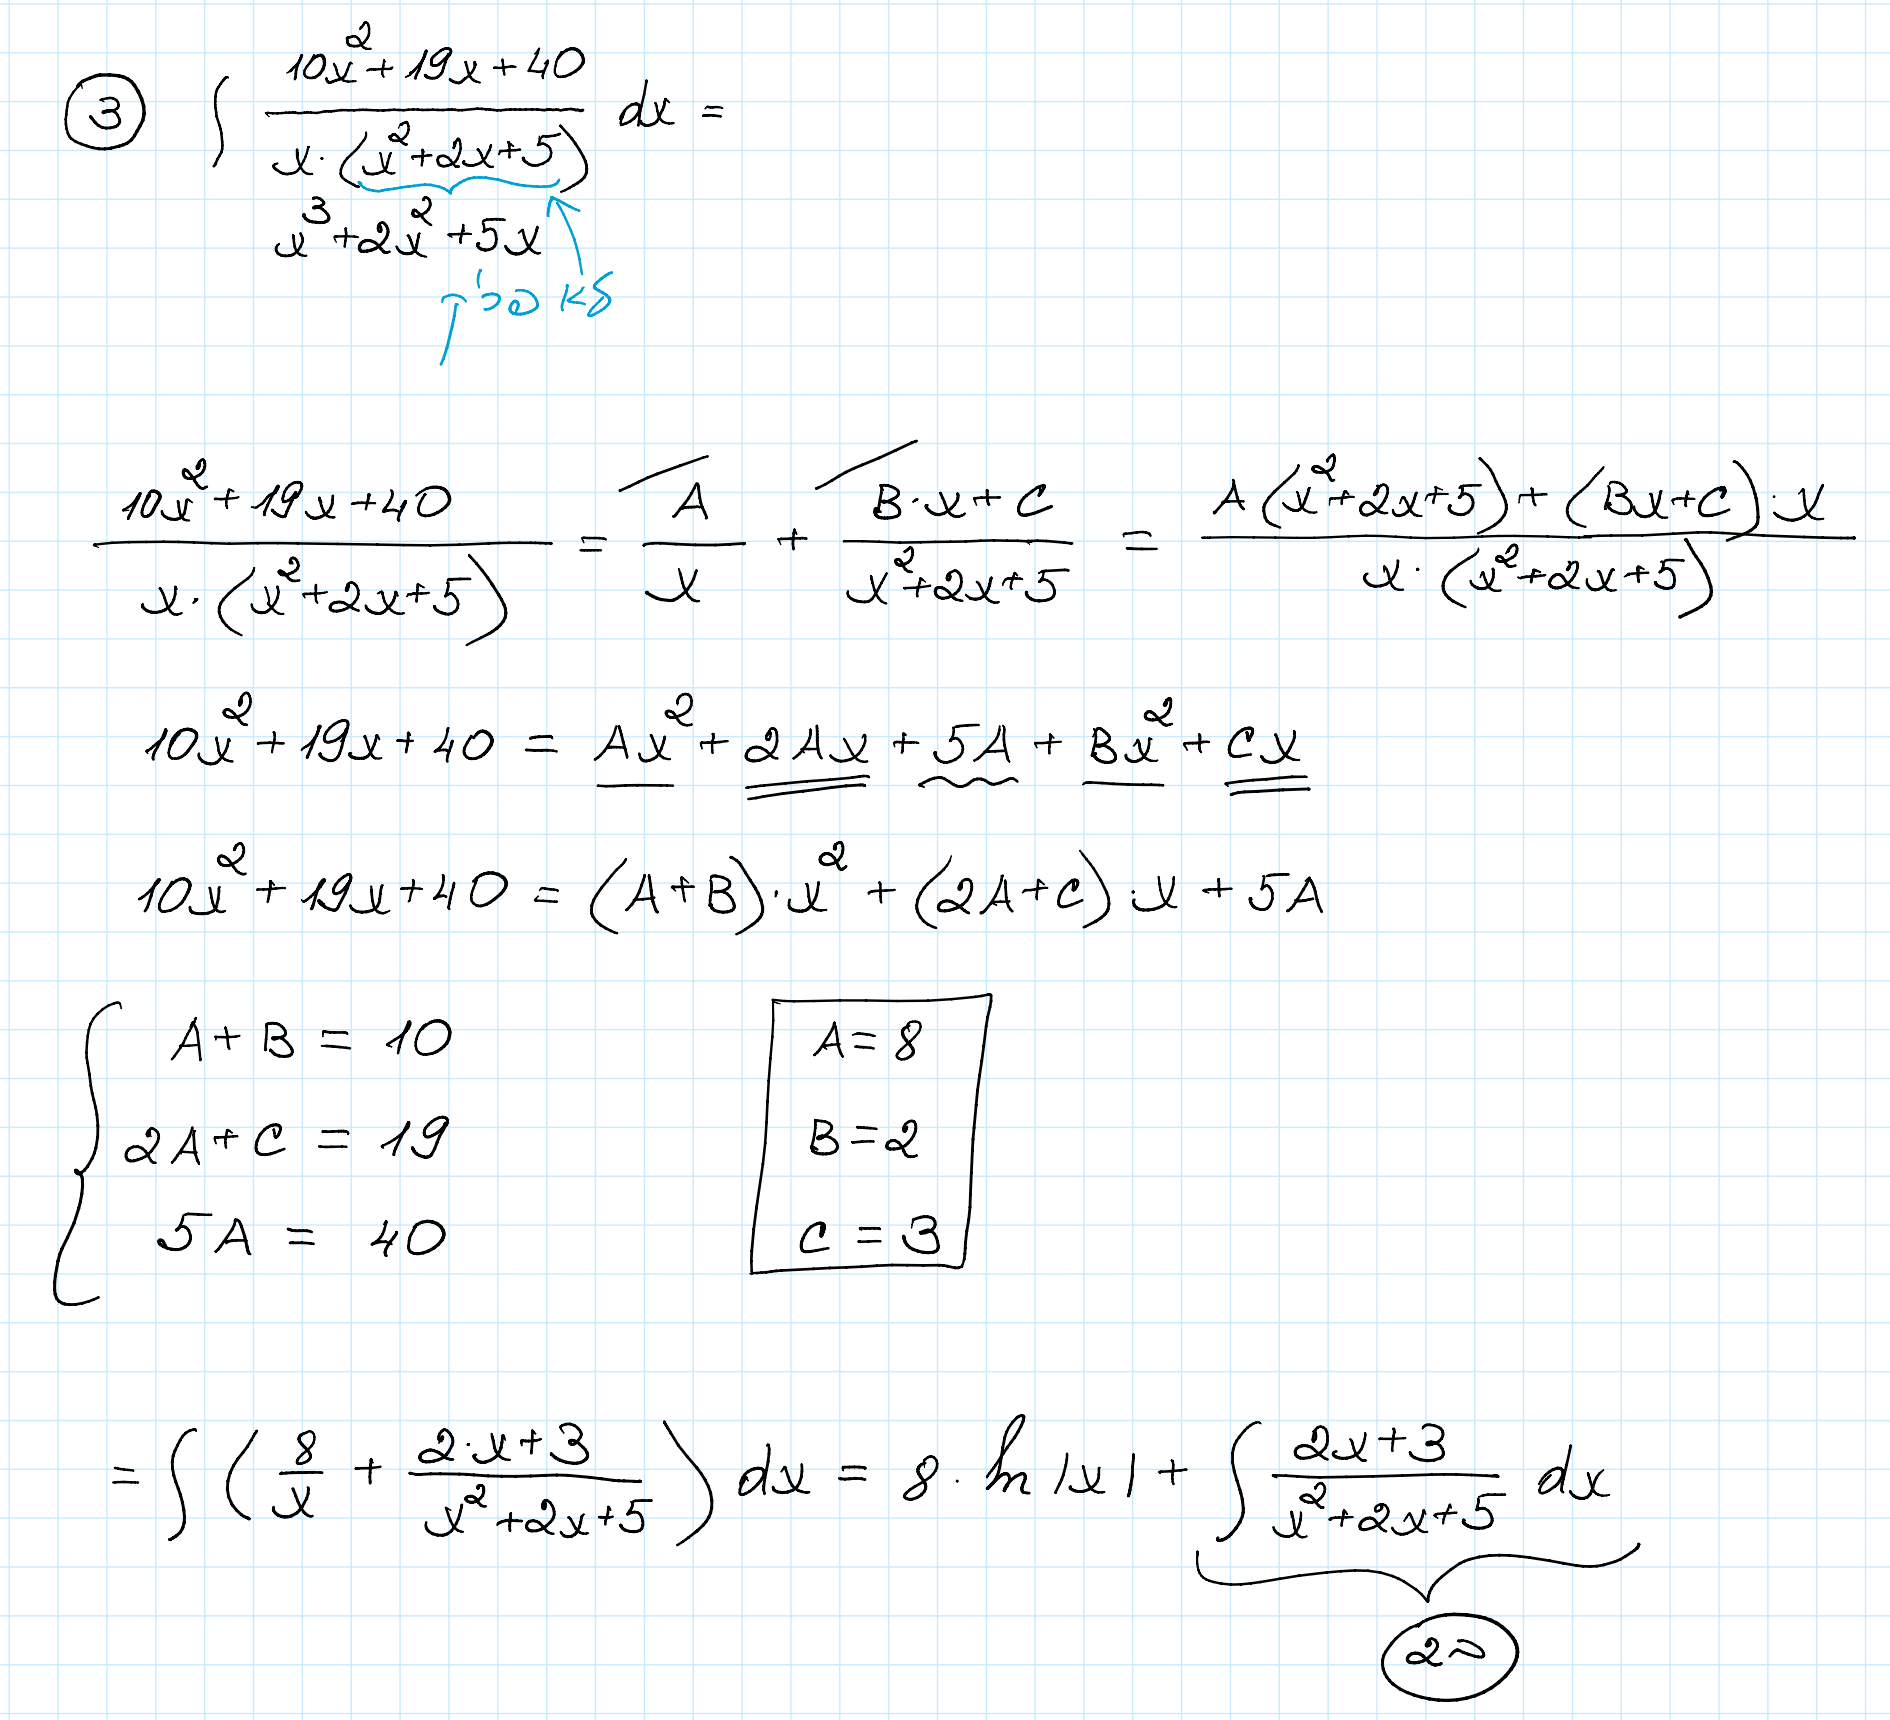 ③ ∫ (10x² + 19x + 40) / (x · (x² + 2x + 5)) dx =
x³ + 2x² + 5x
לא פריק
(10x² + 19x + 40) / (x · (x² + 2x + 5)) = A / x + (B · x + C) / (x² + 2x + 5) = (A(x² + 2x + 5) + (Bx + C) · x) / (x · (x² + 2x + 5))
10x² + 19x + 40 = Ax² + 2Ax + 5A + Bx² + Cx
10x² + 19x + 40 = (A + B) · x² + (2A + C) · x + 5A
A + B = 10 A = 8
2A + C = 19 B = 2
5A = 40 C = 3
= ∫ (8 / x + (2 · x + 3) / (x² + 2x + 5)) dx = 8 · ln |x| + ∫ (2x + 3) / (x² + 2x + 5) dx